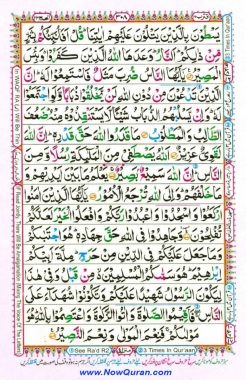 يَسْطُوْنَ بِالَّذِيْنَ يَتْلُوْنَ عَلَيْهِمْ اٰيٰتِنَا ؕ قُلْ اَفَاُنَبِّئُكُمْ بِشَرٍّ
مِّنْ ذٰلِكُمْ ؕ اَلنَّارُ ؕ وَعَدَهَا اللّٰهُ الَّذِيْنَ كَفَرُوْا ؕ وَبِئْسَ
الْمَصِيْرُ يٰۤاَيُّهَا النَّاسُ ضُرِبَ مَثَلٌ فَاسْتَمِعُوْا لَهٗ ؕ اِنَّ
الَّذِيْنَ تَدْعُوْنَ مِنْ دُوْنِ اللّٰهِ لَنْ يَّخْلُقُوْا ذُبَابًا وَّلَوِ اجْتَمَعُوْا
لَهٗ ؕ وَاِنْ يَّسْلُبْهُمُ الذُّبَابُ شَيْئًا لَّا يَسْتَنْقِذُوْهُ مِنْهُ ؕ ضَعُفَ
الطَّالِبُ وَالْمَطْلُوْبُ مَا قَدَرُوا اللّٰهَ حَقَّ قَدْرِهٖ ؕ اِنَّ اللّٰهَ
لَقَوِيٌّ عَزِيْزٌ اَللّٰهُ يَصْطَفِيْ مِنَ الْمَلٰٓئِكَةِ رُسُلًا وَّمِنَ
النَّاسِ ؕ اِنَّ اللّٰهَ سَمِيْعٌ بَصِيْرٌ يَعْلَمُ مَا بَيْنَ اَيْدِيْهِمْ وَ
مَا خَلْفَهُمْ ؕ وَاِلَى اللّٰهِ تُرْجَعُ الْاُمُوْرُ يٰۤاَيُّهَا الَّذِيْنَ اٰمَنُوا
ارْكَعُوْا وَاسْجُدُوْا وَاعْبُدُوْا رَبَّكُمْ وَافْعَلُوا الْخَيْرَ لَعَلَّكُمْ
تُفْلِحُوْنَ وَجَاهِدُوْا فِي اللّٰهِ حَقَّ جِهَادِهٖ ؕ هُوَ اجْتَبٰىكُمْ
وَمَا جَعَلَ عَلَيْكُمْ فِي الدِّيْنِ مِنْ حَرَجٍ ؕ مِلَّةَ اَبِيْكُمْ
اِبْرٰهِيْمَ ؕ هُوَ سَمّٰىكُمُ الْمُسْلِمِيْنَ مِنْ قَبْلُ وَفِيْ هٰذَا
لِيَكُوْنَ الرَّسُوْلُ شَهِيْدًا عَلَيْكُمْ وَتَكُوْنُوْا شُهَدَآءَ عَلَى
النَّاسِ فَاَقِيْمُوا الصَّلٰوةَ وَاٰتُوا الزَّكٰوةَ وَاعْتَصِمُوْا بِاللّٰهِ ؕ هُوَ
مَوْلٰىكُمْ فَنِعْمَ الْمَوْلٰى وَنِعْمَ النَّصِيْرُ
See Ra'd R2
3 Times in Qur'aan
www.NowQuran.com